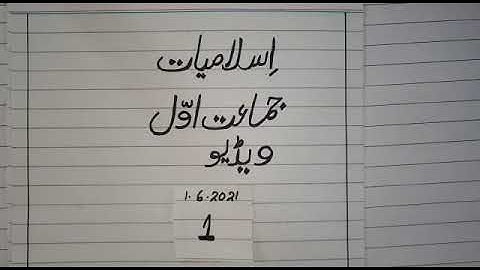 اِسلامیات
جماعت اوّل
ویڈیو
1.6.2021
1